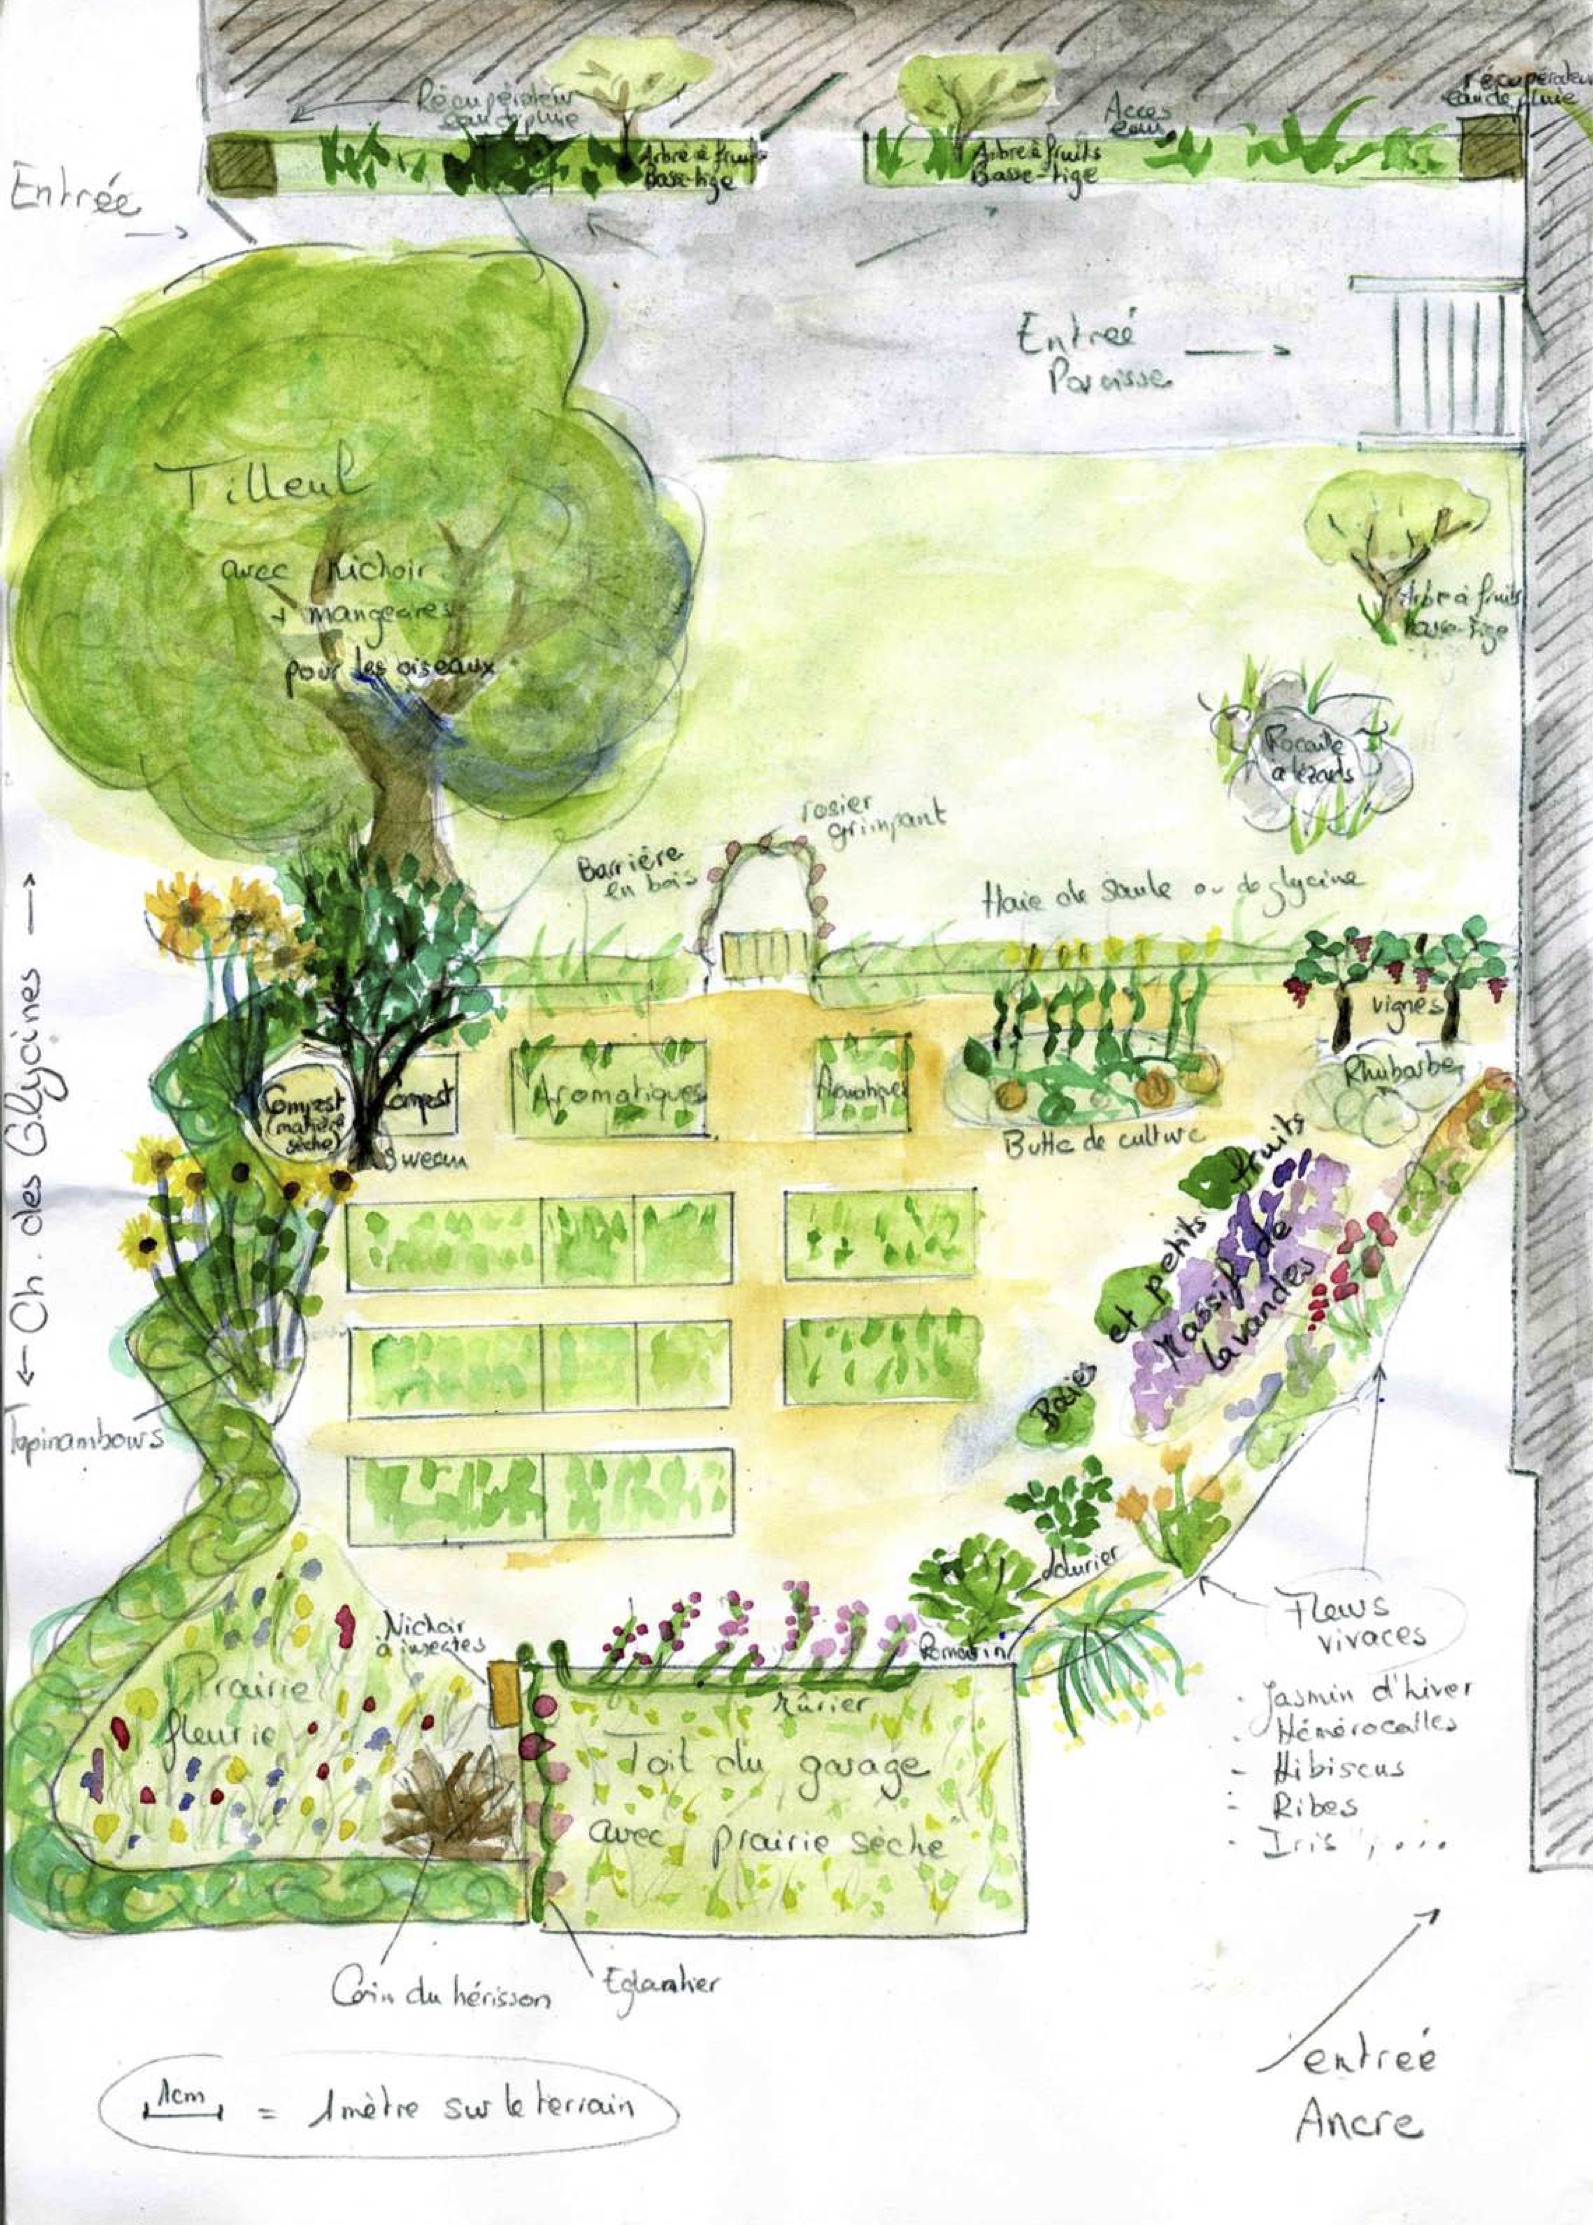 récupérateur
eau de pluie
Récupérateur
eau de pluie
Accès
eau
Arbre à fruits
Basse-tige
Arbre à fruits
Basse-tige
Entrée
Entrée
Paroisse
Tilleul
avec Nichoir
+ mangeoires
pour les oiseaux
Arbre à fruits
basse-tige
Rocaille
à lézards
rosier
grimpant
Barrière
en bois
Haie de saule ou de glycine
vignes
Rhubarbe
Compost
(matière
sèche)
Compost
Aromatiques
Aromatiques
Butte de culture
Sureau
← Ch. des Glycines →
Baies et petits fruits
Massif de
lavandes
Topinambours
Laurier
Romarin
Fleurs
vivaces
. Jasmin d'hiver
. Hémérocalles
- Hibiscus
- Ribes
- Iris, ...
Nichoir
à insectes
Prairie
fleurie
Mûrier
Toit du garage
avec prairie sèche
Coin du hérisson
Eglantier
1cm = 1 mètre sur le terrain
entrée
Ancre